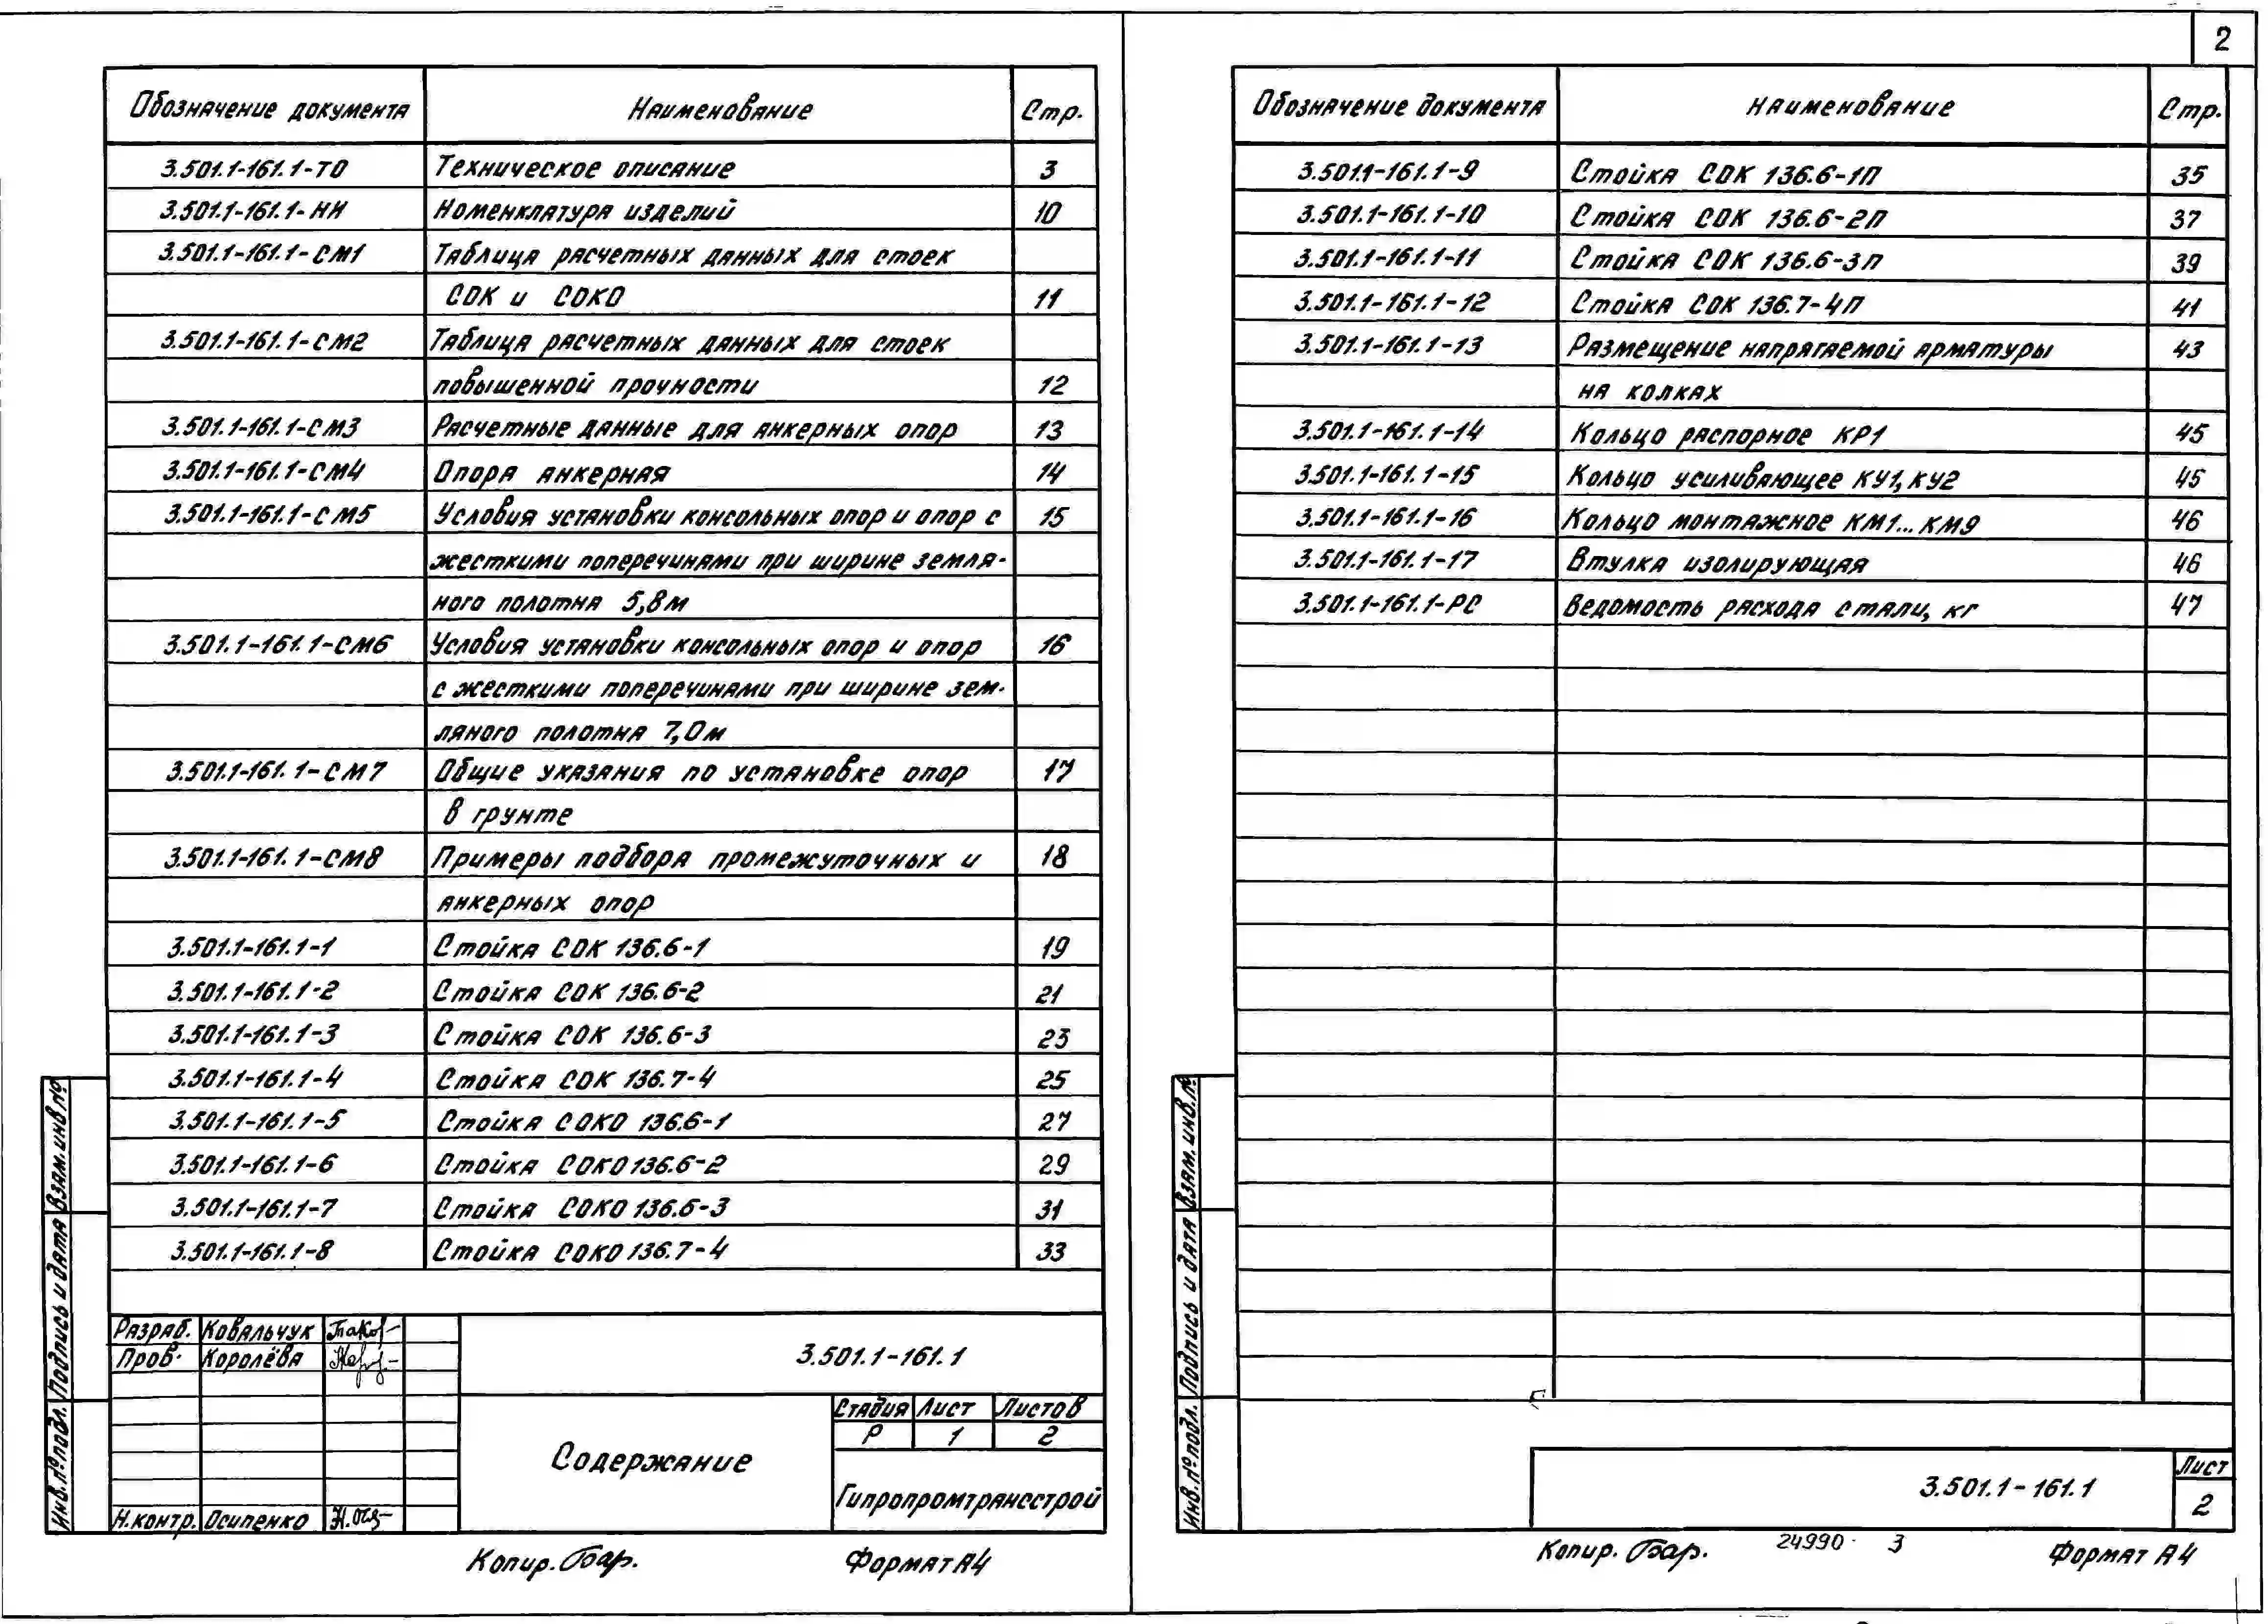 2
Обозначение документа Наименование Стр.
3.501.1-161.1-ТО Техническое описание 3
3.501.1-161.1-НИ Номенклатура изделий 10
3.501.1-161.1-СМ1 Таблица расчетных данных для стоек
СОК и СОКО 11
3.501.1-161.1-СМ2 Таблица расчетных данных для стоек
повышенной прочности 12
3.501.1-161.1-СМ3 Расчетные данные для анкерных опор 13
3.501.1-161.1-СМ4 Опора анкерная 14
3.501.1-161.1-СМ5 Условия установки консольных опор и опор с 15
жесткими поперечинами при ширине земля-
ного полотна 5,8м
3.501.1-161.1-СМ6 Условия установки консольных опор и опор 16
с жесткими поперечинами при ширине зем-
ляного полотна 7,0м
3.501.1-161.1-СМ7 Общие указания по установке опор 17
в грунте
3.501.1-161.1-СМ8 Примеры подбора промежуточных и 18
анкерных опор
3.501.1-161.1-1 Стойка СОК 136.6-1 19
3.501.1-161.1-2 Стойка СОК 136.6-2 21
3.501.1-161.1-3 Стойка СОК 136.6-3 23
3.501.1-161.1-4 Стойка СОК 136.7-4 25
3.501.1-161.1-5 Стойка СОКО 136.6-1 27
3.501.1-161.1-6 Стойка СОКО 136.6-2 29
3.501.1-161.1-7 Стойка СОКО 136.6-3 31
3.501.1-161.1-8 Стойка СОКО 136.7-4 33
Взам. инв. №
Подпись и дата
Инв. № подл.
Разраб. Ковальчук
Пров. Королёва
Н.контр. Осипенко
3.501.1-161.1
Содержание
Стадия Лист Листов
Р 1 2
Гипропромтрансстрой
Копир. Бар. Формат А4
Обозначение документа Наименование Стр.
3.501.1-161.1-9 Стойка СОК 136.6-1П 35
3.501.1-161.1-10 Стойка СОК 136.6-2П 37
3.501.1-161.1-11 Стойка СОК 136.6-3П 39
3.501.1-161.1-12 Стойка СОК 136.7-4П 41
3.501.1-161.1-13 Размещение напрягаемой арматуры 43
на колках
3.501.1-161.1-14 Кольцо распорное КР1 45
3.501.1-161.1-15 Кольцо усиливающее КУ1, КУ2 45
3.501.1-161.1-16 Кольцо монтажное КМ1...КМ9 46
3.501.1-161.1-17 Втулка изолирующая 46
3.501.1-161.1-РС Ведомость расхода стали, кг 47
Взам. инв. №
Подпись и дата
Инв. № подл.
3.501.1-161.1
Лист
2
Копир. Бар. 24990 3 Формат А4